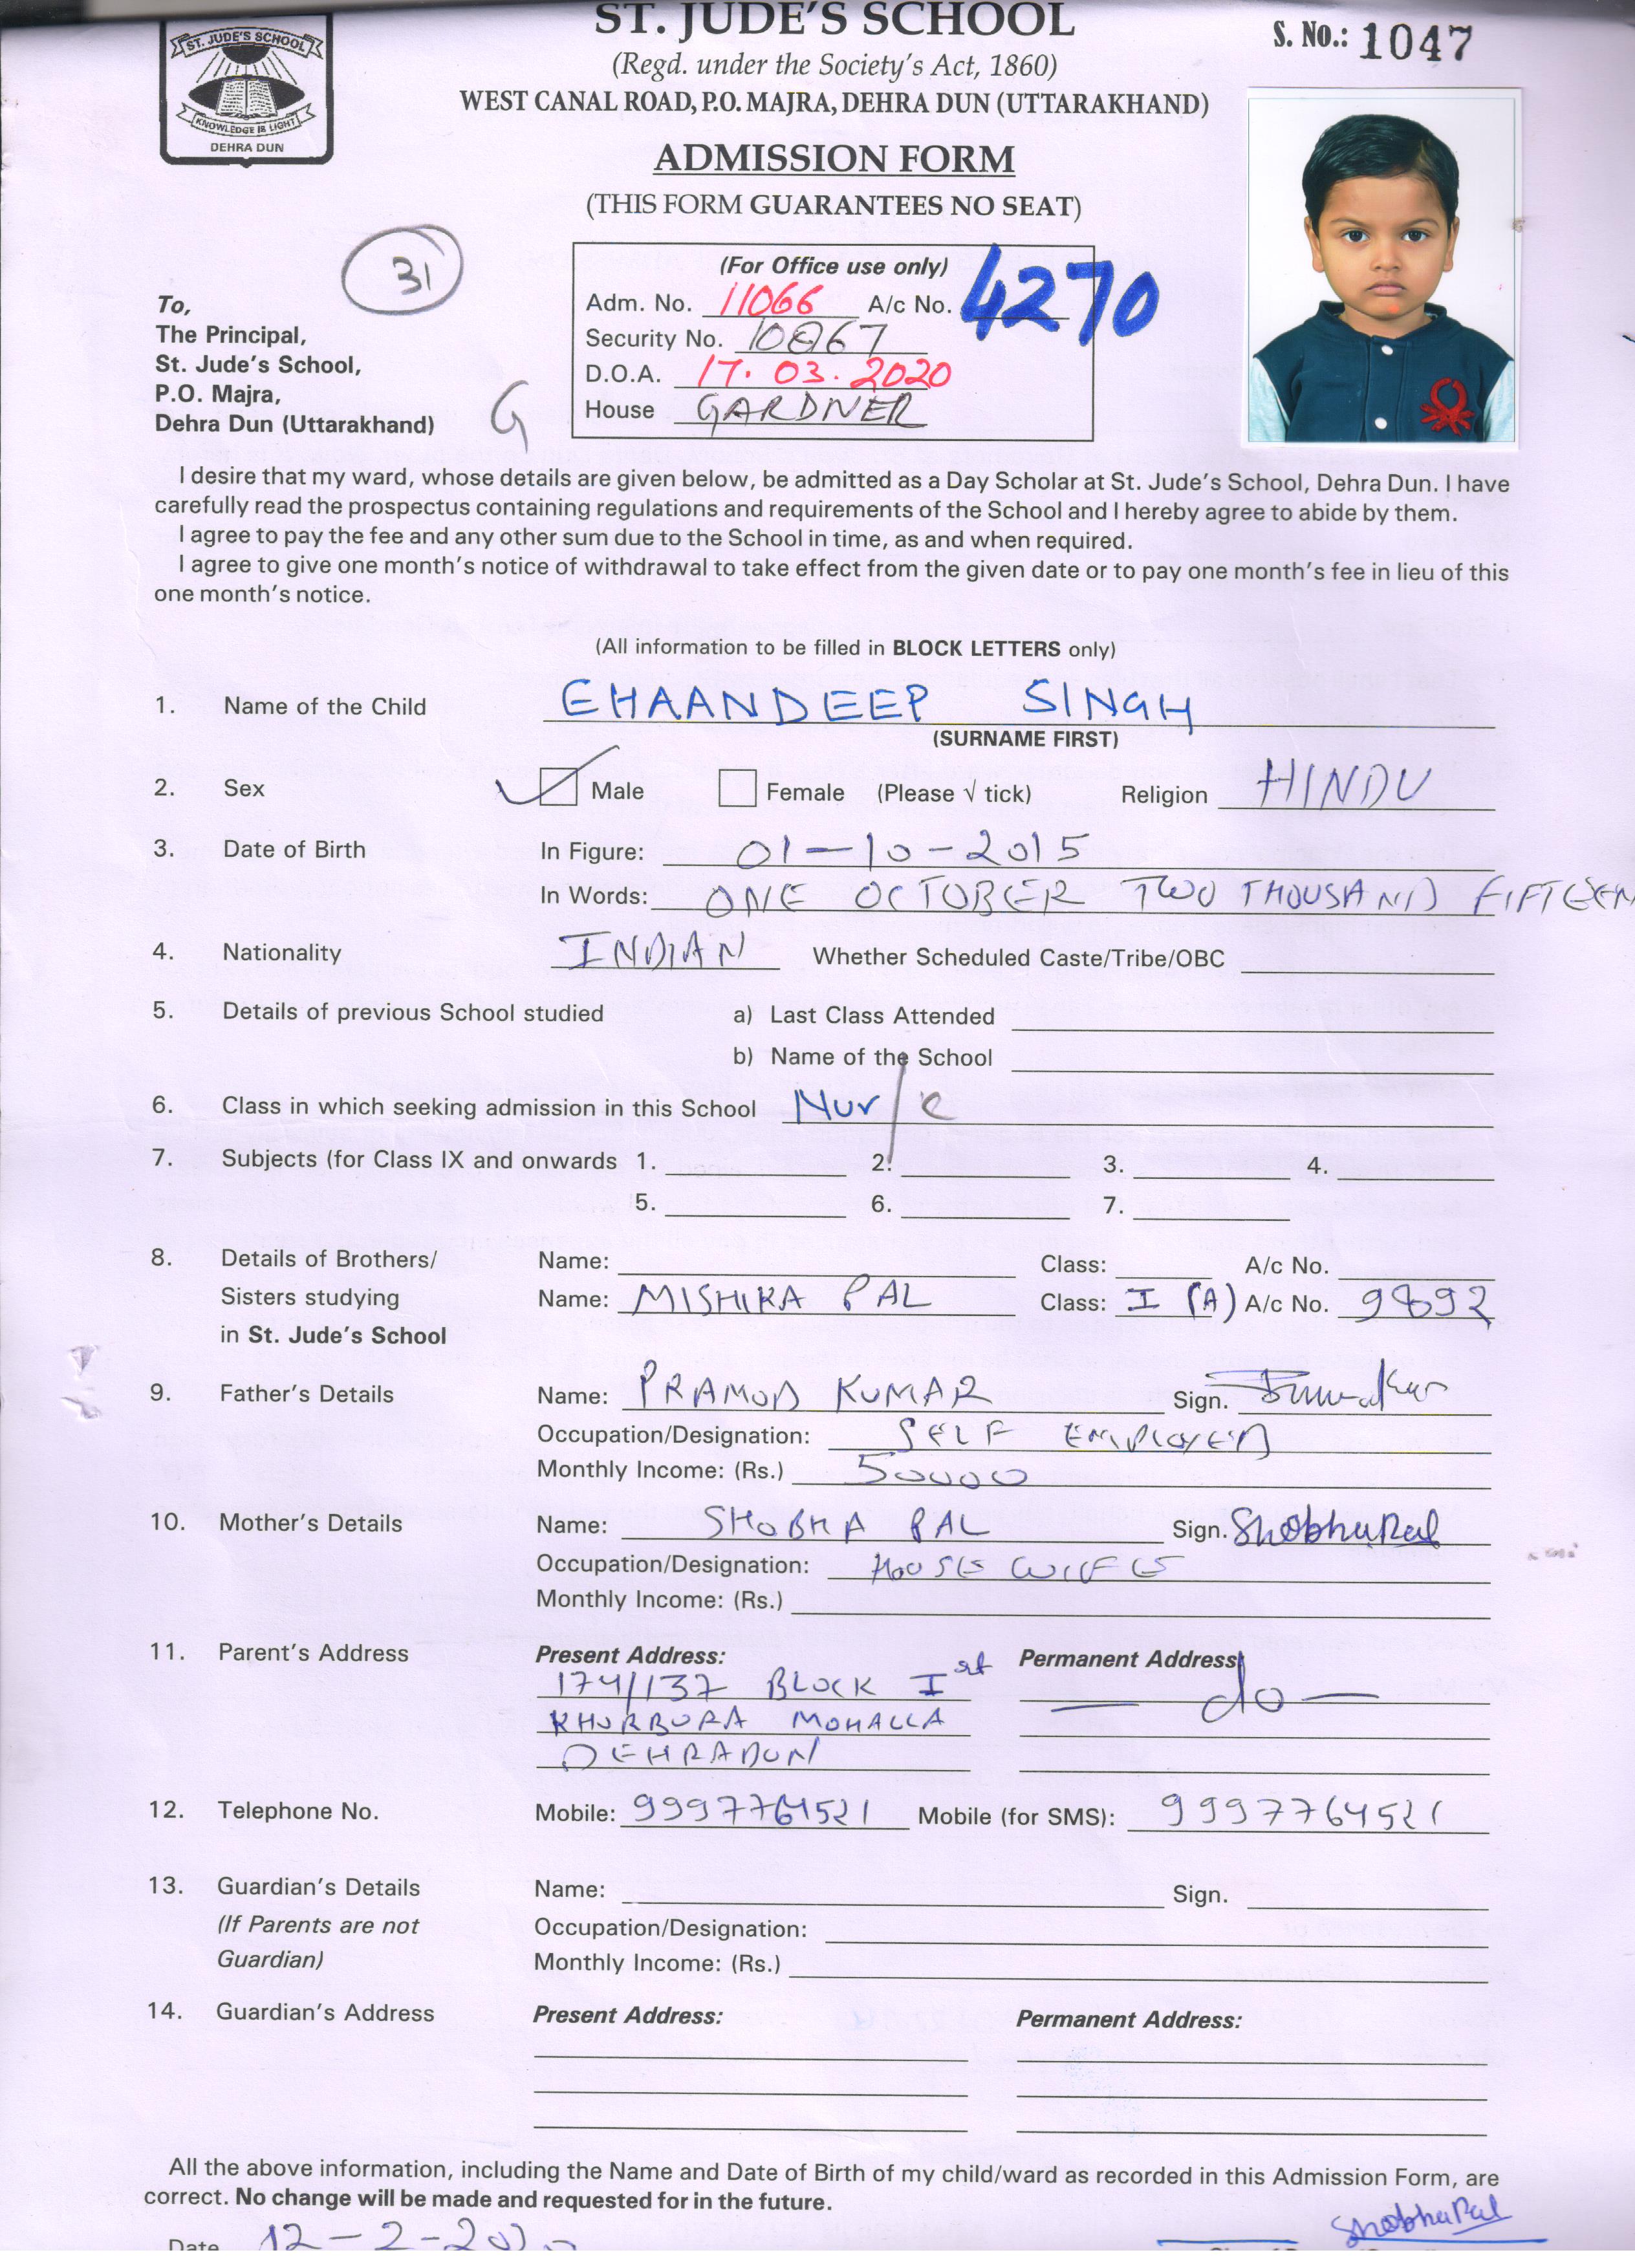 ST. JUDE'S SCHOOL
KNOWLEDGE IS LIGHT
DEHRA DUN
ST. JUDE'S SCHOOL
S. No.: 1047
(Regd. under the Society's Act, 1860)
WEST CANAL ROAD, P.O. MAJRA, DEHRA DUN (UTTARAKHAND)
ADMISSION FORM
(THIS FORM GUARANTEES NO SEAT)
31
(For Office use only)
Adm. No. 11066 A/c No. 4270
Security No.
D.O.A. 17.03.2020
House GARDNER
To,
The Principal,
St. Jude's School,
P.O. Majra,
Dehra Dun (Uttarakhand)
G
I desire that my ward, whose details are given below, be admitted as a Day Scholar at St. Jude's School, Dehra Dun. I have
carefully read the prospectus containing regulations and requirements of the School and I hereby agree to abide by them.
I agree to pay the fee and any other sum due to the School in time, as and when required.
I agree to give one month's notice of withdrawal to take effect from the given date or to pay one month's fee in lieu of this
one month's notice.
(All information to be filled in BLOCK LETTERS only)
1. Name of the Child EHAANDEEP SINGH
(SURNAME FIRST)
2. Sex Male Female (Please √ tick) Religion HINDU
3. Date of Birth In Figure: 01-10-2015
In Words: ONE OCTOBER TWO THOUSAND FIFTEEN
4. Nationality INDIAN Whether Scheduled Caste/Tribe/OBC
5. Details of previous School studied a) Last Class Attended
b) Name of the School
6. Class in which seeking admission in this School Nur/C
7. Subjects (for Class IX and onwards 1. 2. 3. 4.
5. 6. 7.
8. Details of Brothers/ Name: Class: A/c No.
Sisters studying Name: MISHIKA PAL Class: I (A) A/c No.
in St. Jude's School
9. Father's Details Name: PRAMOD KUMAR Sign.
Occupation/Designation: SELF EMPLOYED
Monthly Income: (Rs.) 50000
10. Mother's Details Name: SHOBHA PAL Sign. Shobha Pal
Occupation/Designation: HOUSE WIFE
Monthly Income: (Rs.)
11. Parent's Address Present Address: Permanent Address:
174/137 BLOCK Ist — do —
KHURBURA MOHALLA
DEHRADUN
12. Telephone No. Mobile: 9997764521 Mobile (for SMS): 9997764521
13. Guardian's Details Name: Sign.
(If Parents are not Occupation/Designation:
Guardian) Monthly Income: (Rs.)
14. Guardian's Address Present Address: Permanent Address:
All the above information, including the Name and Date of Birth of my child/ward as recorded in this Admission Form, are
correct. No change will be made and requested for in the future.
Shobha Pal
Date 12-2-2020